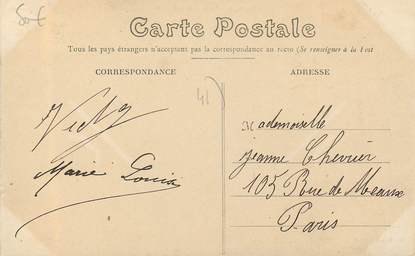 50€
Carte Postale
Tous les pays étrangers n'acceptent pas la correspondance au recto (Se renseigner à la Post
CORRESPONDANCE
ADRESSE
41
Marie Louise
Mademoiselle
jeanne Chevrier
105 Rue de Meaux
Paris